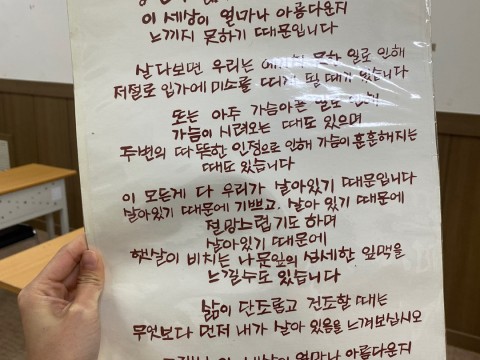 이 세상이 얼마나 아름다운지
느끼지 못하기 때문입니다
살다보면 우리는 예기치 못한 일로 인해
저절로 입가에 미소를 띠게 될 때가 있습니다
또는 아주 가슴아픈 일로 인해
가슴이 시려오는 때도 있으며
주변의 따뜻한 인정으로 인해 가슴이 훈훈해지는
때도 있습니다
이 모든게 다 우리가 살아있기 때문입니다
살아있기 때문에 기쁘고, 살아 있기 때문에
절망스럽기도 하며
살아있기 때문에
햇살이 비치는 나뭇잎의 섬세한 잎맥을
느낄수도 있습니다
삶이 단조롭고 건조할 때는
무엇보다 먼저 내가 살아 있음을 느껴보십시오
이 세상이 얼마나 아름다운지